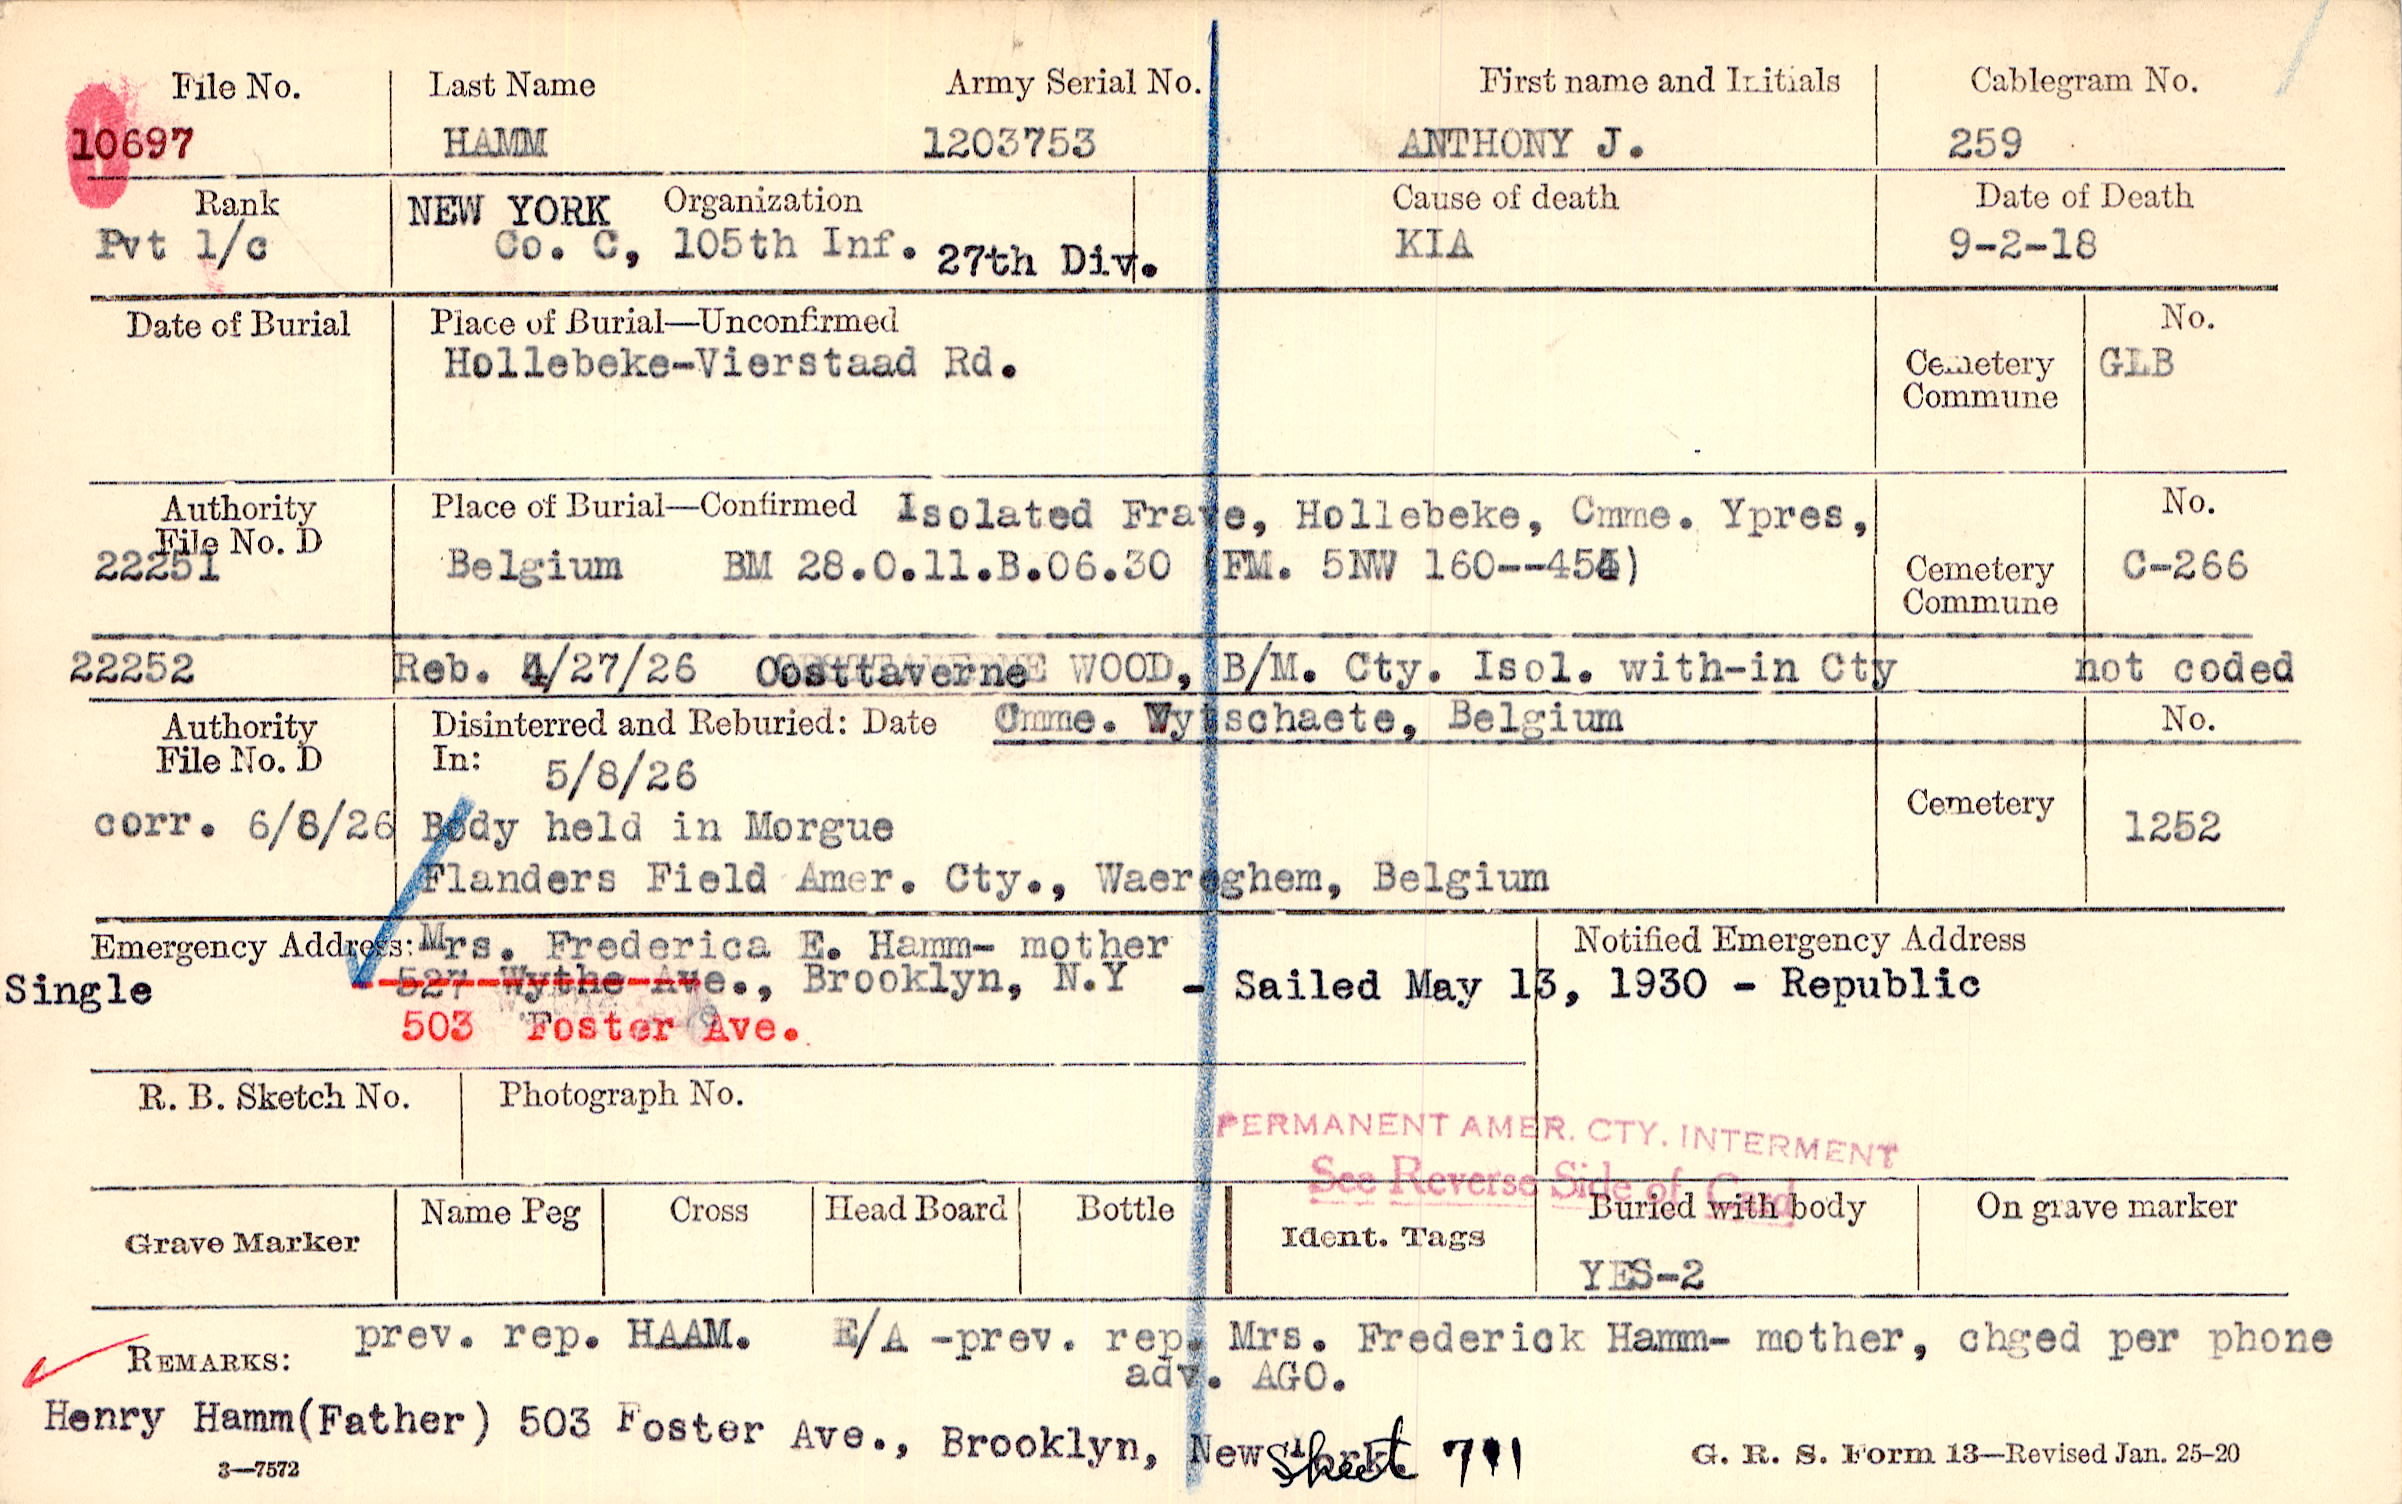 File No. Last Name Army Serial No. First name and Initials Cablegram No.
10697 HAMM 1203753 ANTHONY J. 259
Rank NEW YORK Organization Cause of death Date of Death
Pvt 1/c Co. C, 105th Inf. 27th Div. KIA 9-2-18
Date of Burial Place of Burial—Unconfirmed No.
Hollebeke-Vierstaad Rd. Cemetery GLB
Commune
Authority Place of Burial—Confirmed Isolated Frave, Hollebeke, Cmme. Ypres, No.
File No. D
22251 Belgium BM 28.0.11.B.06.30 (FM. 5NW 160--454) Cemetery C-266
Commune
22252 Reb. 4/27/26 Oosttaverne WOOD, B/M. Cty. Isol. with-in Cty not coded
Authority Disinterred and Reburied: Date Cmme. Wytschaete, Belgium No.
File No. D In: 5/8/26
corr. 6/8/26 Body held in Morgue Cemetery 1252
Flanders Field Amer. Cty., Waereghem, Belgium
Emergency Address: Mrs. Frederica E. Hamm- mother Notified Emergency Address
Single 527 Wythe Ave., Brooklyn, N.Y - Sailed May 13, 1930 - Republic
503 Foster Ave.
R. B. Sketch No. Photograph No.
PERMANENT AMER. CTY. INTERMENT
See Reverse Side of Card
Grave Marker Name Peg Cross Head Board Bottle Ident. Tags Buried with body On grave marker
YES-2
prev. rep. HAAM. E/A -prev. rep. Mrs. Frederick Hamm- mother, chged per phone
REMARKS: adv. AGO.
Henry Hamm(Father) 503 Foster Ave., Brooklyn, New York Sheet 711
3—7572 G. R. S. Form 13—Revised Jan. 25-20